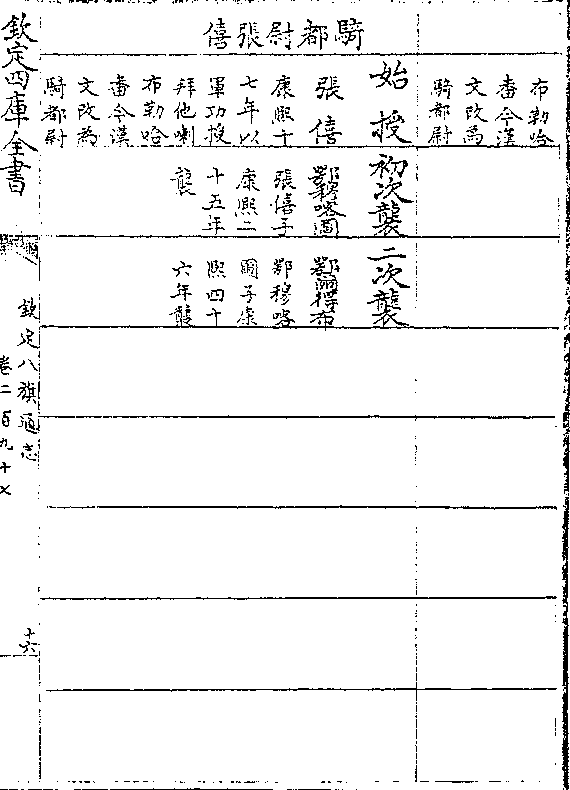 騎都尉張僖
布勒哈
番今漢
文改為
騎都尉
始授
張僖
康熙十
七年以
軍功授
拜他喇
布勒哈
番今漢
文改為
騎都尉
初次襲
鄂穆喀圖
張僖子
康熙二
十五年
襲
二次襲
鄂爾得布
鄂穆喀
圖子康
熙四十
六年襲
欽定四庫全書
欽定八旗通志
卷二百九十七
十六